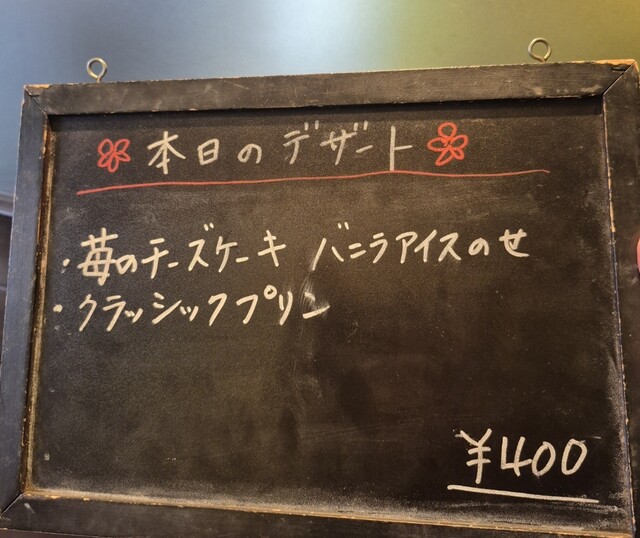 本日のデザート
・苺のチーズケーキ バニラアイスのせ
・クラッシックプリン
¥400